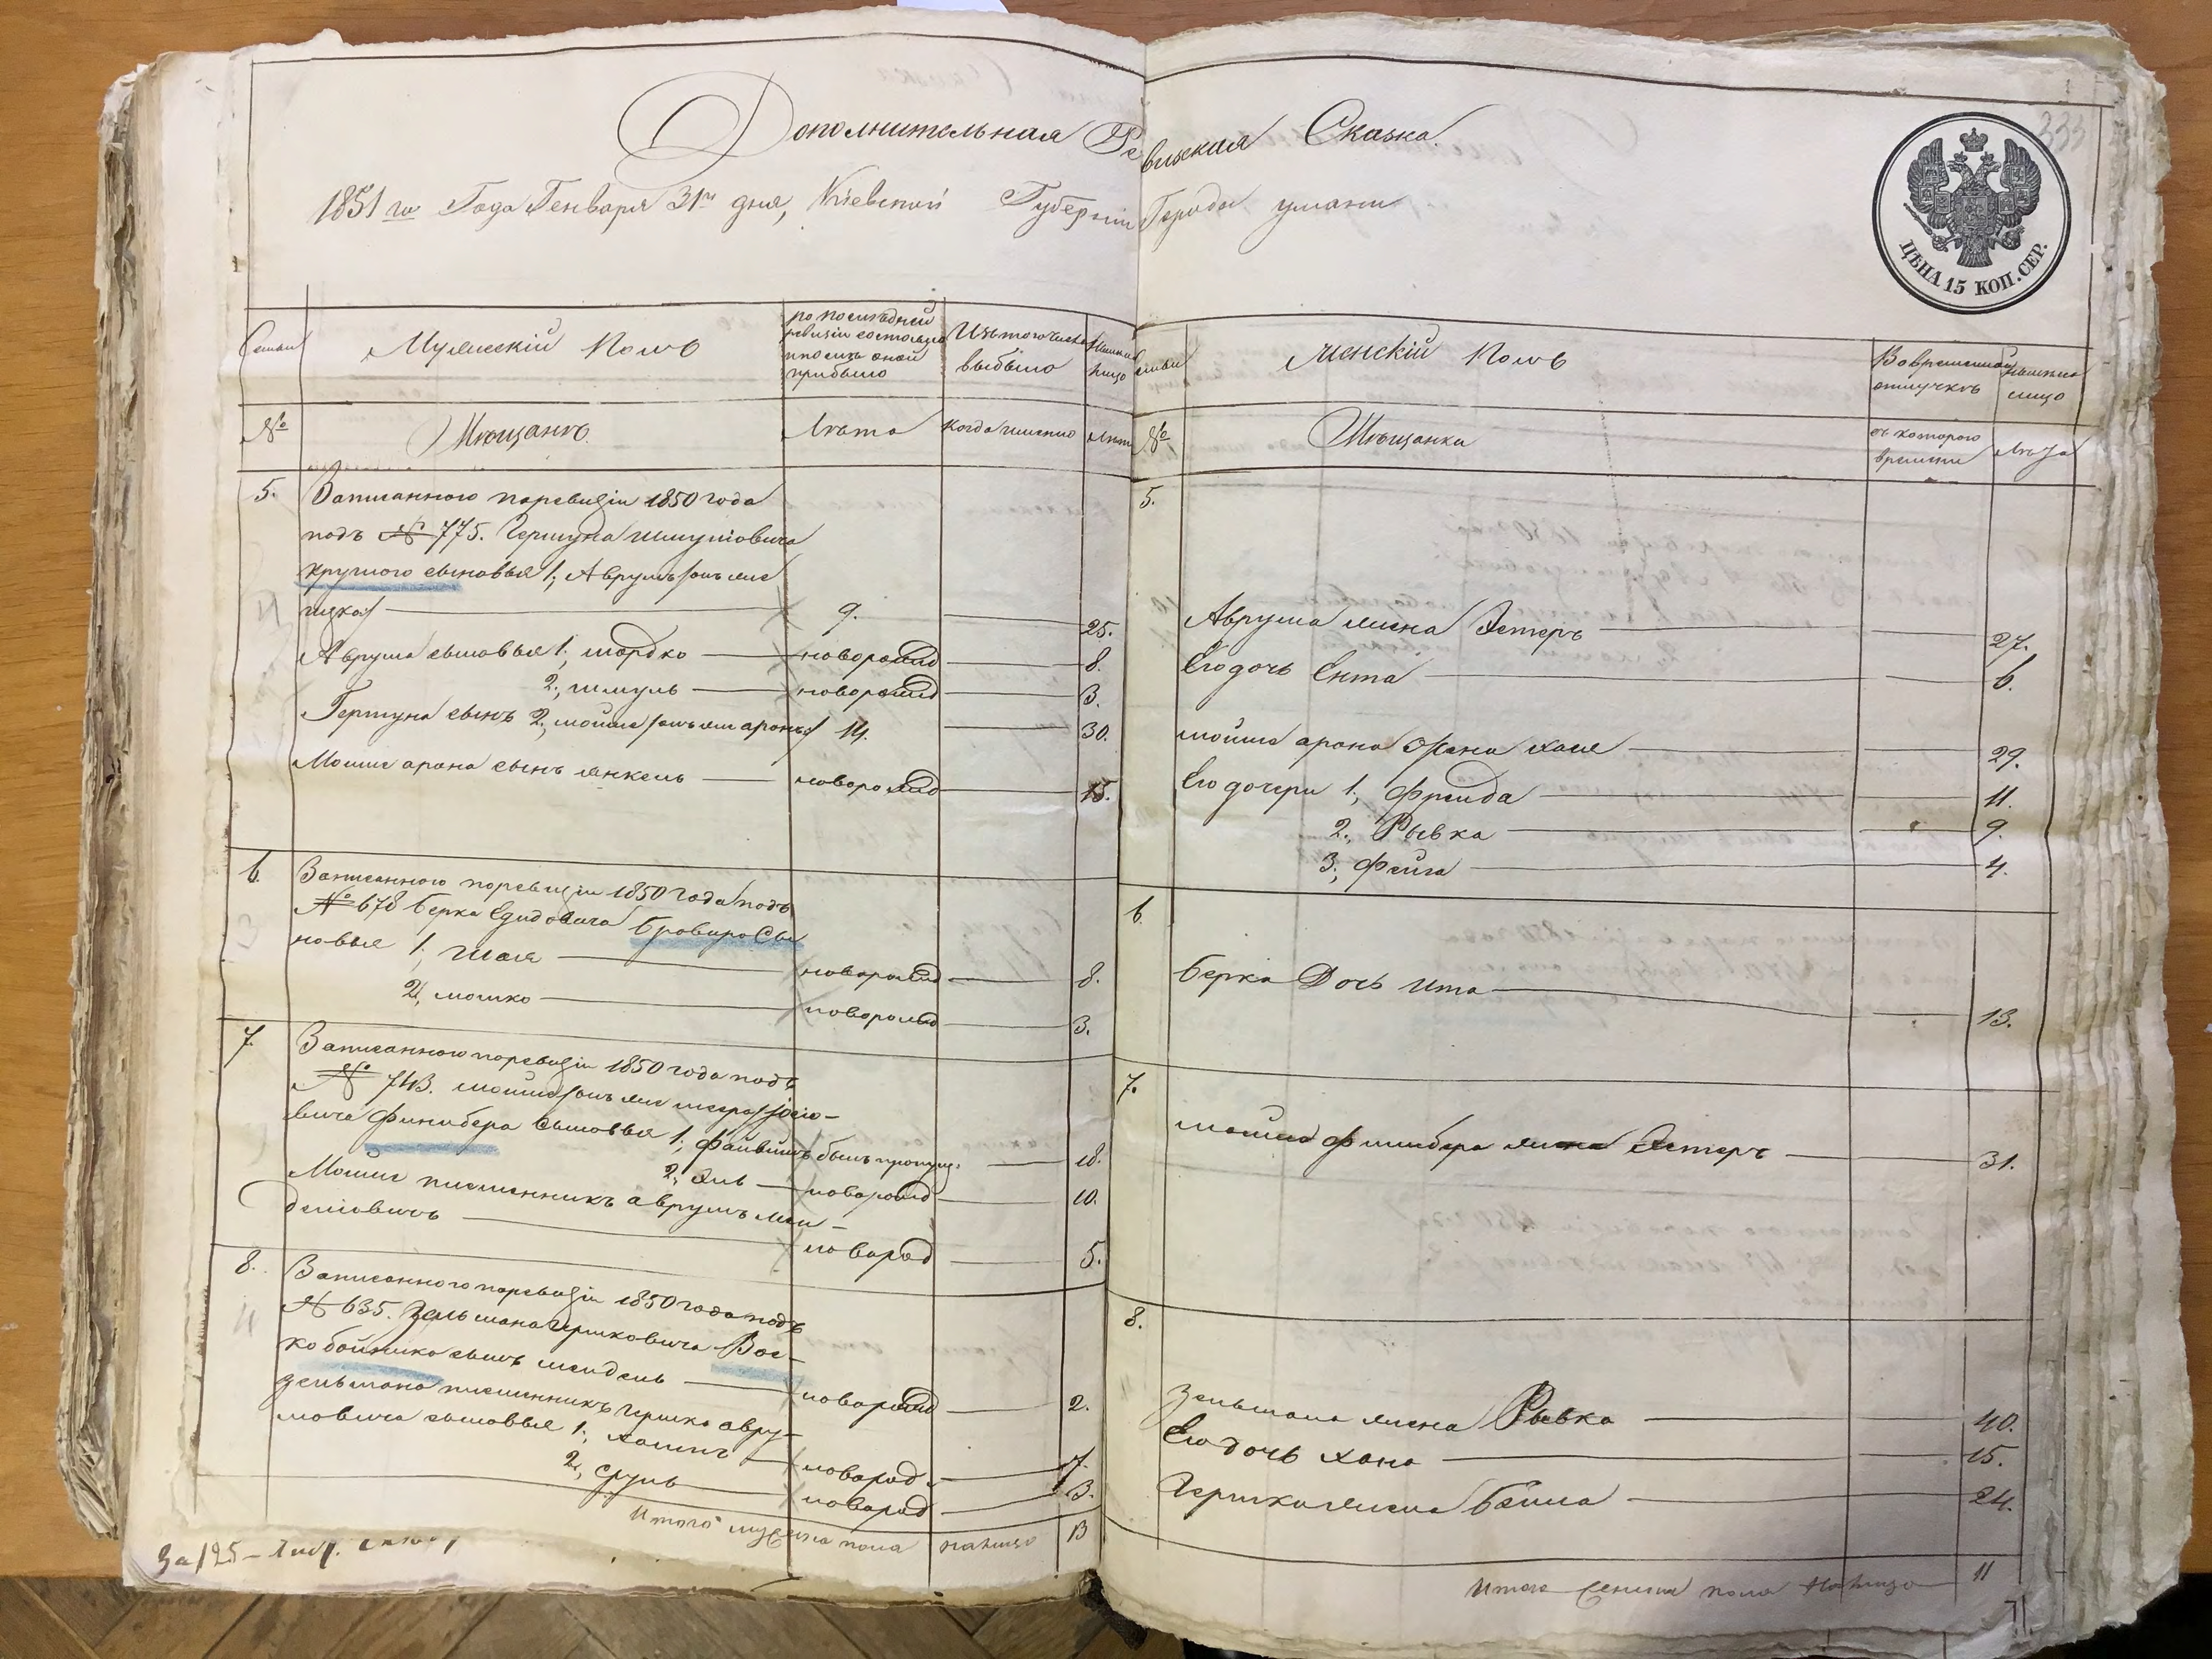 Дополнительная Ревизская Сказка.
1851 го Года Генваря 31го дня, Кіевской Губерніи Города умани
333
ЦѢНА 15 КОП. СЕР.
Семьи
Мужескій Полъ
по последней ревизіи состояло и после оной прибыло
Изъ того числа выбыло
Ныне на лицо
№
Мещане
Лета
когда имянно
Лета
5. Записанного по ревизіи 1850 года
подъ № 775. Гершуна Шмулiовича
круглого сыновья 1, Аврумъ /онъ же
ицко/ 9. 25.
Аврума сыновья 1, мордко новорожд 8.
2, шмуль новорожд 3.
Гершуна сынъ 2, мойше /онъ же аронъ/ 14. 30.
Мошие арона сынъ янкель новорожд 15.
6. Записанного по ревизіи 1850 года подъ
№ 678 берка Едидовича бровира Сы
новья 1, Шая новорожд 8.
2, мошко новорожд 3.
7. Записанного по ревизіи 1850 года подъ
№ 743. мойше /онъ же
вича финкбера сыновья 1, файвишъ былъ пропущ. 18.
2, Эль новорожд 10.
Мошие племянникъ аврумъ мен-
делiовичъ новорожд 5.
8. Записанного по ревизіи 1850 года подъ
№ 635. Зельмана Гершковича Вос-
кобойника сынъ мендель новорожд 2.
Зельмана племянникъ Гершка авру-
мовича сыновья 1, хаимъ новорожд. 7.
2, сруль новорожд 3.
Итого мужеска пола налицо 13
За 125 -
Семьи
женскій Полъ
Во временной отлучке
Ныне на лицо
№
Мещанки
съ которого времени
Лета
5.
Аврума жена Эстеръ 27.
Его дочь Ента 6.
мойше арона жена хая 29.
Его дочери 1, Фрейда 11.
2, Рывка 9.
3, Фейга 4.
6.
берка Дочь ита 13.
7.
мойше финкбера жена Эстеръ 31.
8.
Зельмана жена Рывка 40.
Его дочь хана 15.
Гершка жена бейла 24.
Итого женска пола налицо 11
71.